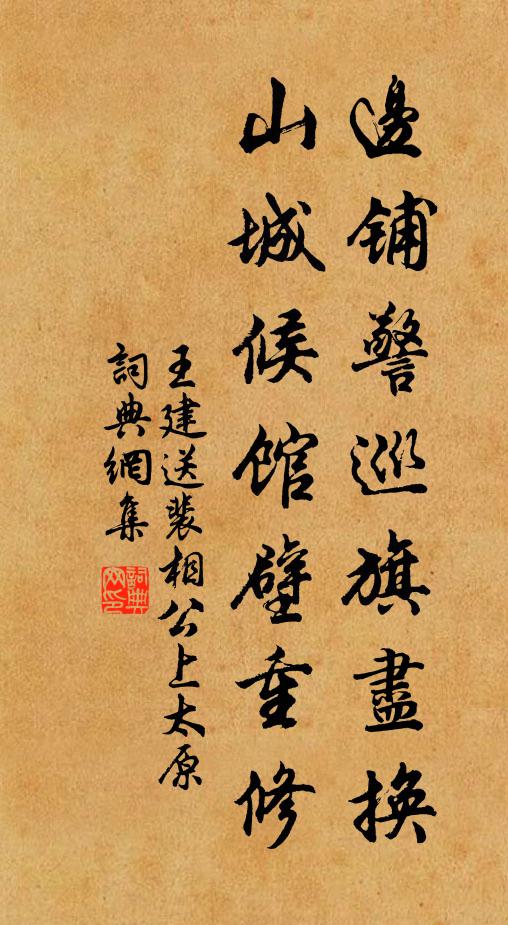 邊鋪警巡旗盡換
山城候館壁重修
王建送裴相公上太原
詞典網集
詞典网印